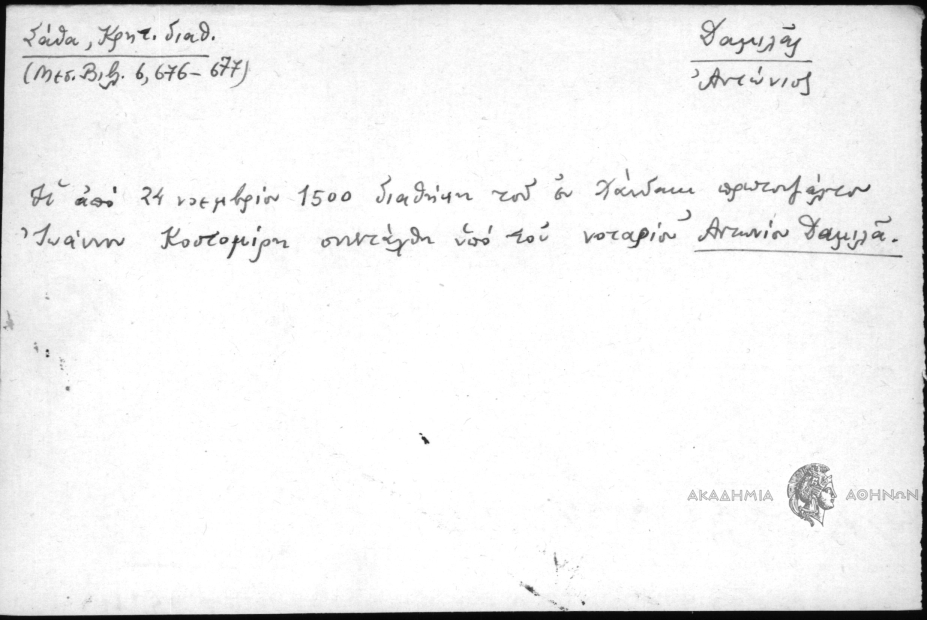 Σάθα, Κρητ. διαθ.
(Μεσ. Βιβλ. 6, 676-677)
Δαμιλᾶς
Ἀντώνιος
Ἡ ἀπό 24 νοεμβρίου 1500 διαθήκη τοῦ ἐν Χάνδακι πρωτοψάλτου
Ἰωάννου Κοστομίρη συνετάχθη ὑπό τοῦ νοταρίου Ἀντωνίου Δαμιλᾶ.
ΑΚΑΔΗΜΙΑ ΑΘΗΝΩΝ